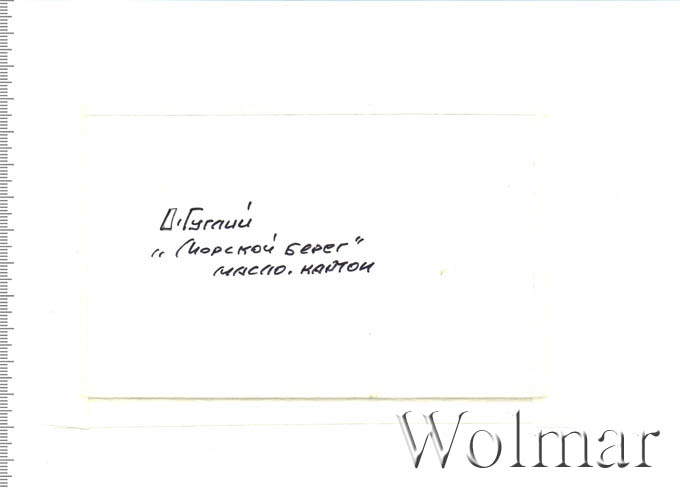 Гуглий
„Морской берег"
масло. картон
Wolmar